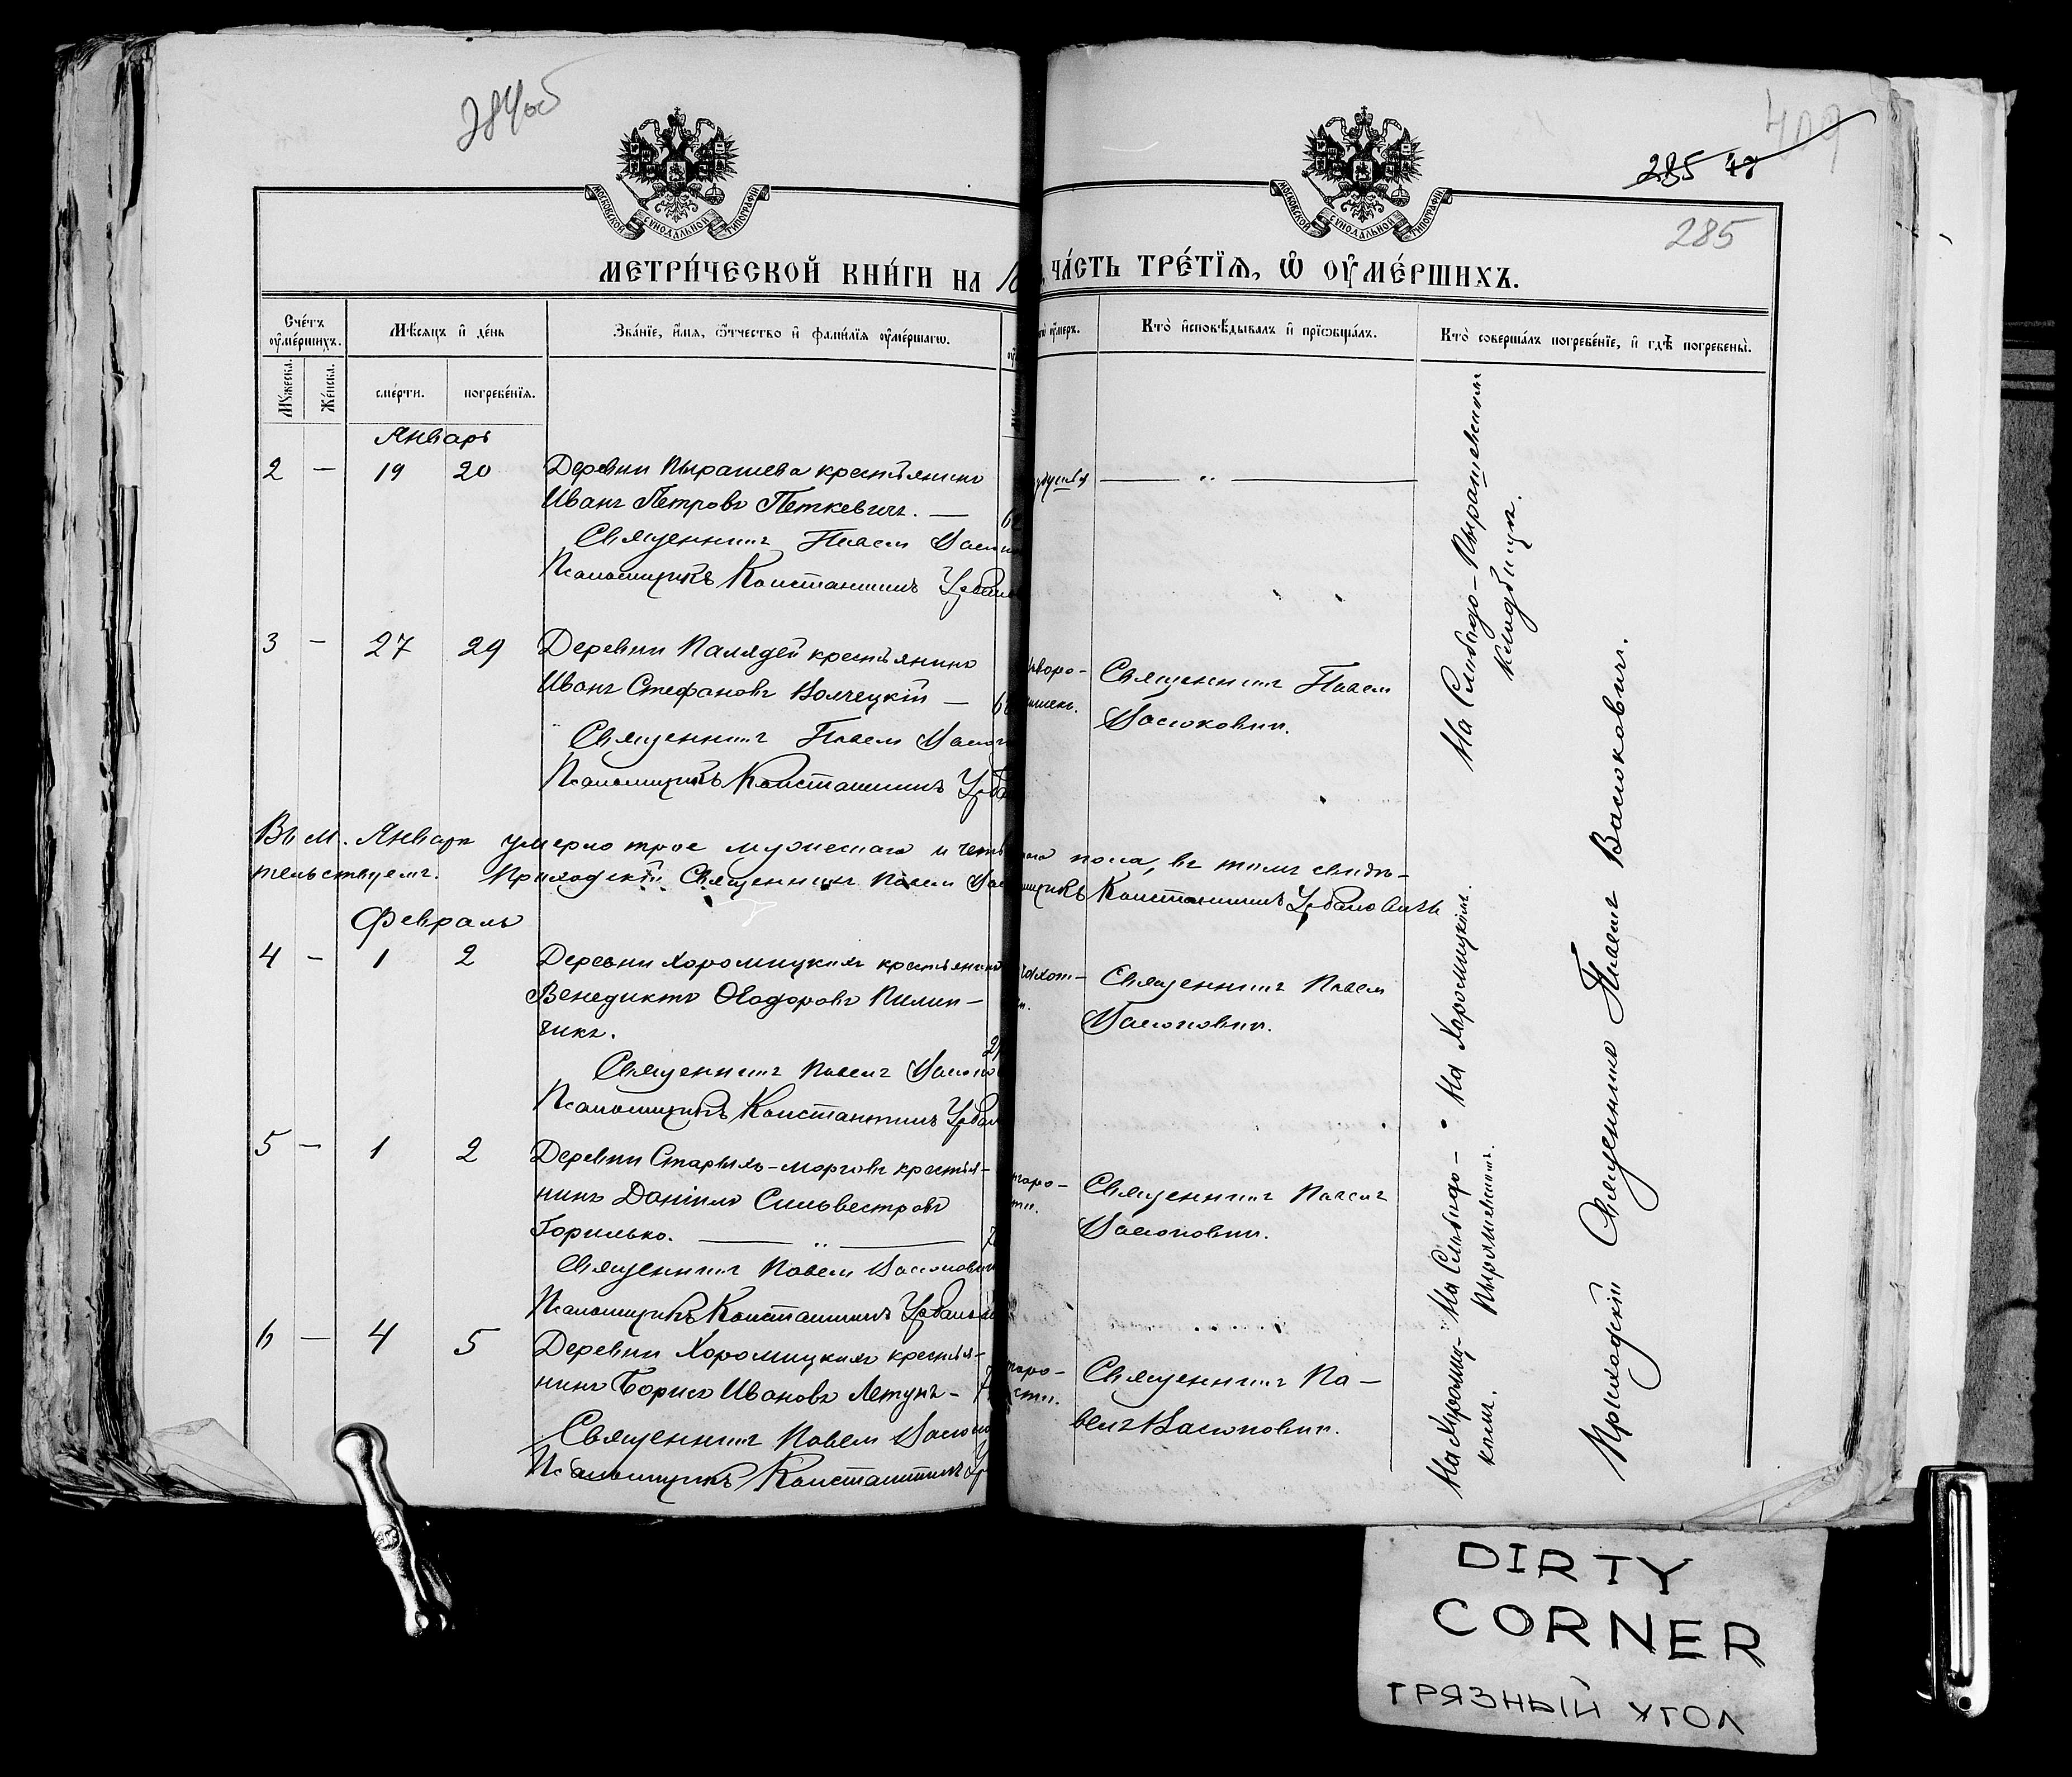 284об
МОСКОВСКОЙ СѴНОДАЛЬНОЙ ТИПОГРАФІИ
МОСКОВСКОЙ СѴНОДАЛЬНОЙ ТИПОГРАФІИ
409
285
285
МЕТРИ́ЧЕСКОЙ КНИ́ГИ НА
ЧА́СТЬ ТРЕ́ТІѦ, Ѽ ОУ҆МЕ́РШИХЪ.
Сче́тъ оу҆ме́ршихъ.
Мѣ́сяцъ и҆ де́нь
Зва́нїе, и҆́мя, ѻ҆́тчество и҆ фами́лїя оу҆ме́ршагѡ.
Кто̀ и҆сповѣ́дывалъ и҆ прїѡбща́лъ.
Кто̀ соверша́лъ погребе́нїе, и҆ гдѣ̀ погребены̀.
Му́жеска.
Же́нска.
сме́рти.
погребе́нїя.
Январь
2 — 19 20 Деревни Пырашева крестьянинъ
Иванъ Петровъ Петкевичъ. —
Священникъ Павелъ
Псаломщикъ Константинъ
3 — 27 29 Деревни Палядей крестьянинъ
Иванъ Стефановъ Волчецкій —
Священникъ Павелъ
Псаломщикъ Константинъ
Священникъ Павелъ
Васюковичъ.
На Слободо-Пырашевскомъ
кладбищѣ.
Въ м. Январѣ умерло трое мужескаго и
пола, въ томъ свидѣ-
тельствуемъ. Приходскій Священникъ Павелъ
Константинъ Урбановичъ
Февраль
4 — 1 2 Деревни Хоромицкихъ крестьянинъ
Венедиктъ Ѳеодоровъ Пилип-
чикъ.
Священникъ Павелъ
Псаломщикъ Константинъ
Священникъ Павелъ
Васюковичъ.
На Хоромицкомъ.
5 — 1 2 Деревни Старыхъ-морговъ крестья-
нинъ Даніилъ Сильвестровъ
Горилько.
Священникъ Павелъ Васюкович
Псаломщикъ Константинъ
Священникъ Павелъ
Васюковичъ.
На Слободо-
Пырашевскомъ.
6 — 4 5 Деревни Хоромицкихъ крестья-
нинъ Борисъ Ивановъ Летунъ —
Священникъ Павелъ
Псаломщикъ Константинъ
Священникъ Па-
велъ Васюковичъ.
На Хоромиц-
комъ.
Приходскій Священникъ Павелъ Васюковичъ.
DIRTY
CORNER
ГРЯЗНЫЙ УГОЛ